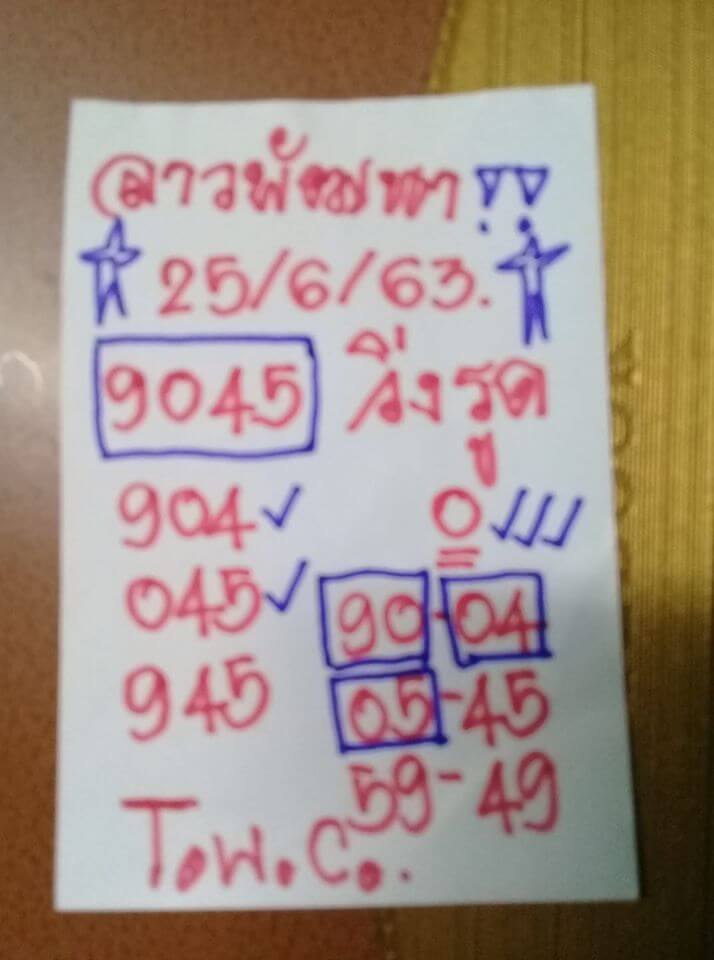 ลาวพัฒนา !!
25/6/63.
9045 วิ่งรูด
904 0
045 90-04
945 05-45
59-49
T.พ.C..